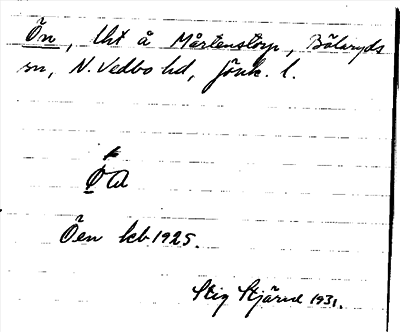 Ön, Uht å Mårtenstorp, Bälaryds
sn, N. Vedbo hd, Jönk. l.
Öen kb 1925.
Stig Stjärne 1931.